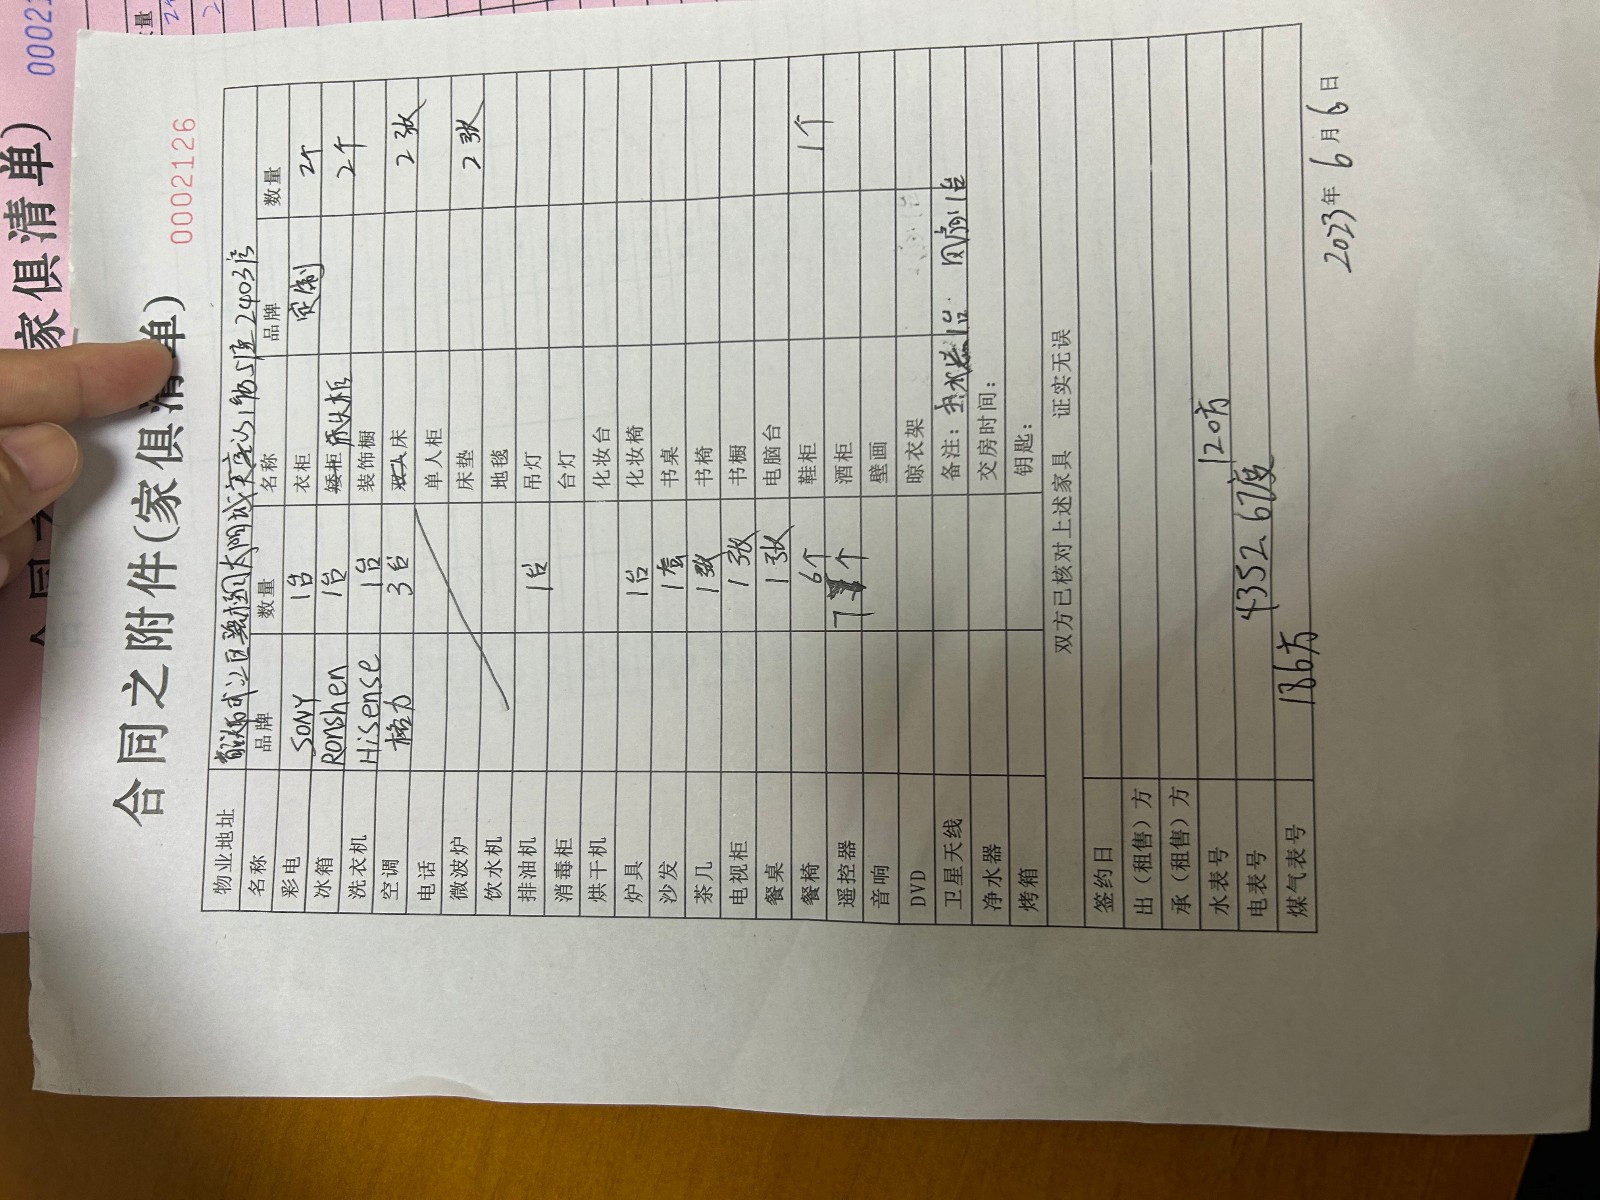 合同之附件(家俱清单)
0002126
物业地址 2403房
名称 品牌 数量 名称 品牌 数量
彩电 SONY 1台 衣柜 定制 2个
冰箱 Ronshen 1台 矮柜 床头柜 2个
洗衣机 Hisense 1台 装饰橱
空调 格力 3台 床 2张
电话 单人柜
微波炉 床垫 2张
饮水机 地毯
排油机 1台 吊灯
消毒柜 台灯
烘干机 化妆台
炉具 1台 化妆椅
沙发 1套 书桌
茶几 1张 书椅
电视柜 1张 书橱
餐桌 1张 电脑台
餐椅 6个 鞋柜 1个
遥控器 7个 酒柜
音响 壁画
DVD 晾衣架
卫星天线 备注: 1台 风扇1台
净水器 交房时间:
烤箱 钥匙:
双方已核对上述家具 证实无误
签约日
出(租售)方
承(租售)方
水表号 120方
电表号 4352.67度
煤气表号 186方
2023年6月6日
家俱清单)
0002
数量